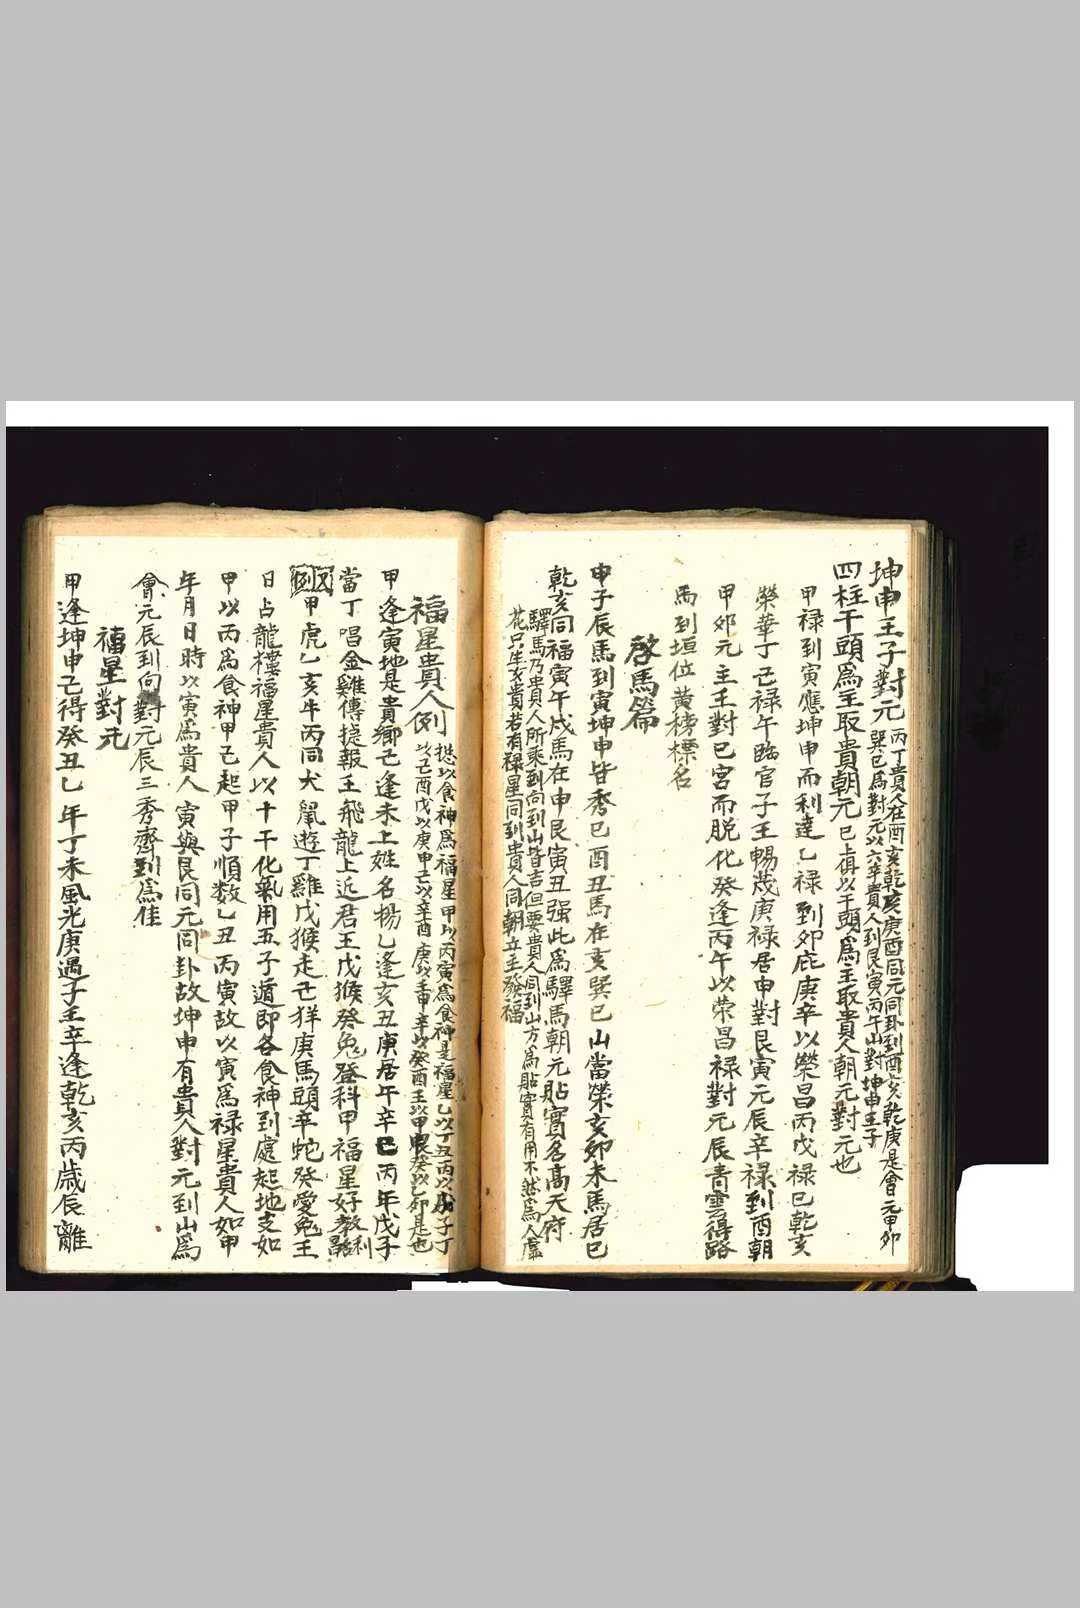 坤申壬子對元丙丁貴人在酉亥乾亥庚酉同元同卦到酉亥乾庚是會元甲卯
巽巳爲對元以六辛貴人到艮寅丙午山對坤申壬子
四柱干頭爲主取貴朝元已上俱以干頭爲主取貴人朝元對元也
甲禄到寅應坤申而利達乙禄到卯庇庚辛以榮昌丙戊禄巳乾亥
榮華丁己禄午臨官子壬暢茂庚禄居申對艮寅元辰辛禄到酉朝
甲卯元主壬對巳宮而脱化癸逢丙午以荣昌禄對元辰青雲得路
馬到垣位黄榜標名
啓馬篇
申子辰馬到寅坤申皆秀巳酉丑馬在亥巽巳山當榮亥卯未馬居巳
乾亥同福寅午戌馬在申艮寅丑强此爲驛馬朝元貼實名高天府
驛馬乃貴人所乘到向到山皆吉但要貴人同到山方爲貼實有用不然爲人虛
花只生女貴若有禄星同到貴人同朝立主發福
福星貴人例 㧾以食神爲福星甲以丙寅爲食神是福星乙以丁丑丙以戊子丁
以己酉戊以庚申己以辛酉庚以壬申辛以癸酉壬以甲癸以乙卯是也
甲逢寅地是貴鄉己逢未上姓名揚乙逢亥丑庚居午辛巳丙年戊子
當丁唱金雞傳捷報壬飛龍上近君王戊猴癸兔登科甲福星好教利
又例 甲虎乙亥牛丙同犬鼠遊丁雞戊猴走己羊庚馬頭辛蛇癸愛兔壬
日占龍樓福星貴人以十干化氣用五子遁即各食神到處起地支如
甲以丙爲食神甲己起甲子順数乙丑丙寅故以寅爲禄星貴人如甲
年月日時以寅爲貴人寅與艮同元同卦故坤申有貴人對元到山爲
會元辰到向對元辰三秀齊到爲佳
福星對元
甲逢坤申己得癸丑乙年丁未風光庚遇子壬辛逢乾亥丙歲辰離